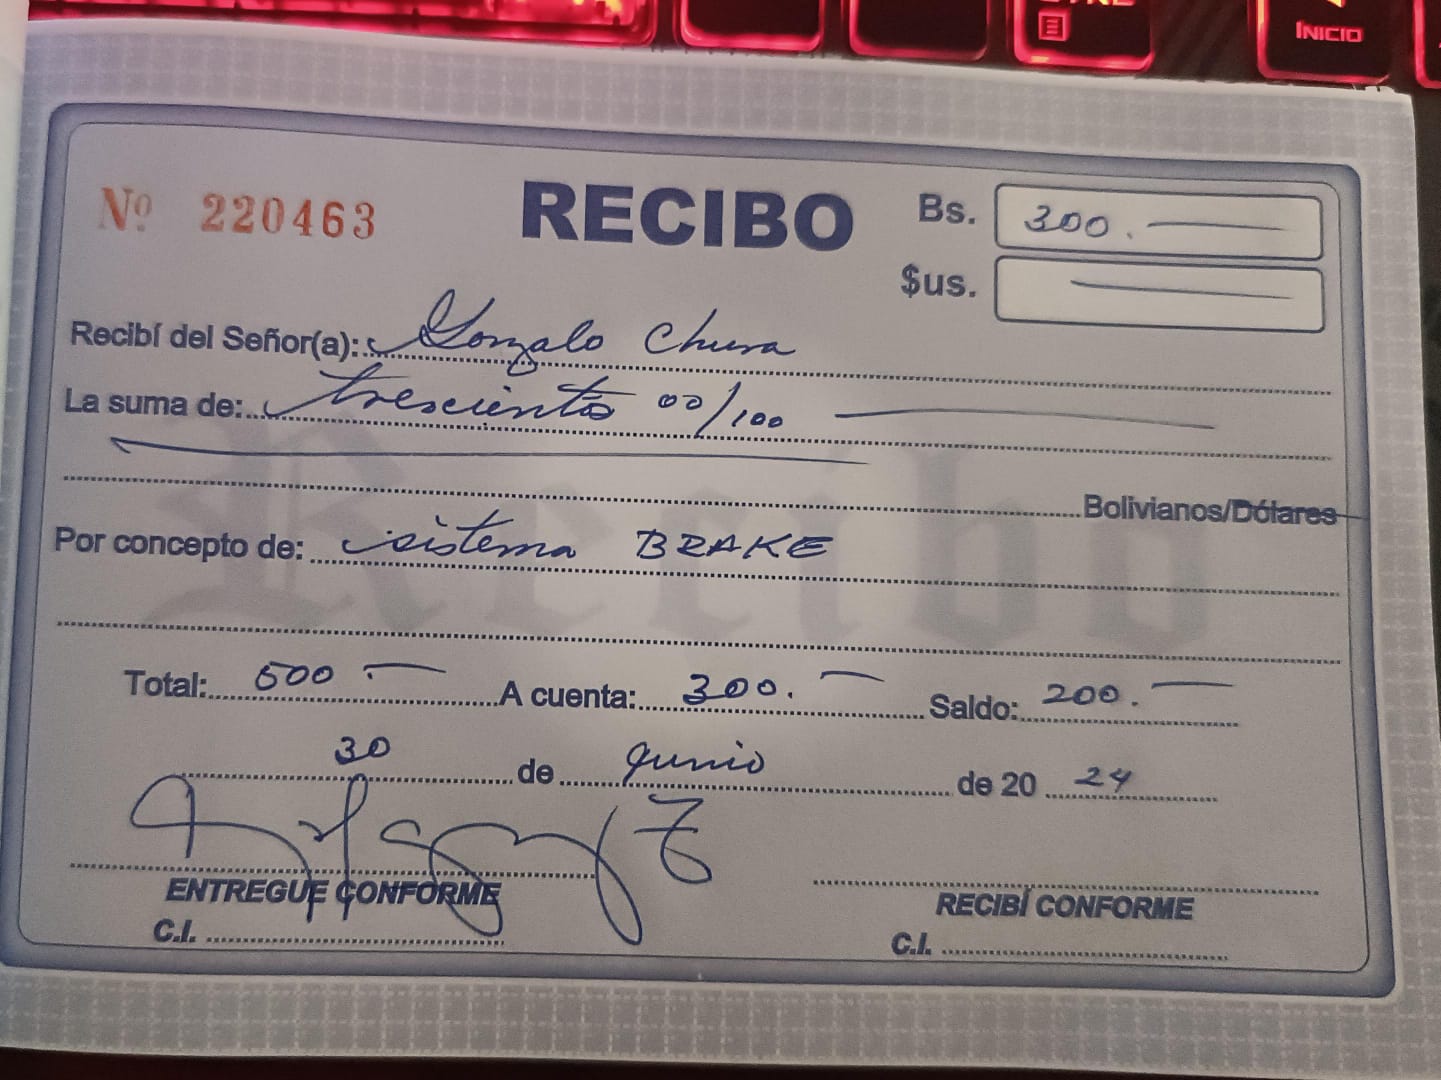 INICIO
Nº 220463 RECIBO Bs. 300.
$us.
Recibí del Señor(a): Gonzalo Chura
La suma de: trescientos 00/100
Bolivianos/Dólares
Por concepto de: sistema BRAKE
Recibo
Total: 500 A cuenta: 300. Saldo: 200.
30 de Junio de 20 24
ENTREGUE CONFORME RECIBÍ CONFORME
C.I. C.I.